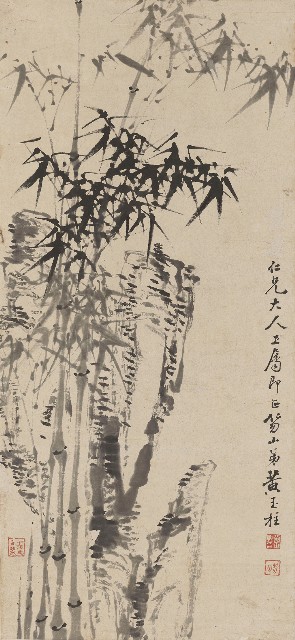 仁兄大人正屬即正笏山弟黃玉柱